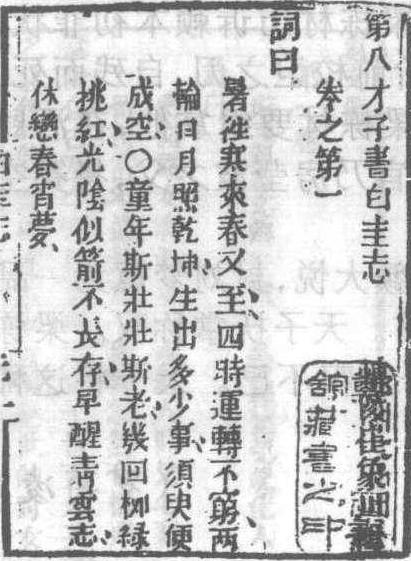 第八才子書白圭志
卷之第一
詞曰
暑往寒來春又至、四時運轉不窮、兩
輪日月照乾坤、生出多少事、須臾便
成空〇童年斯壯壯斯老、幾回柳綠
挑紅、光陰似箭不長存、早醒青雲志、
休戀春宵夢、
館藏書之印